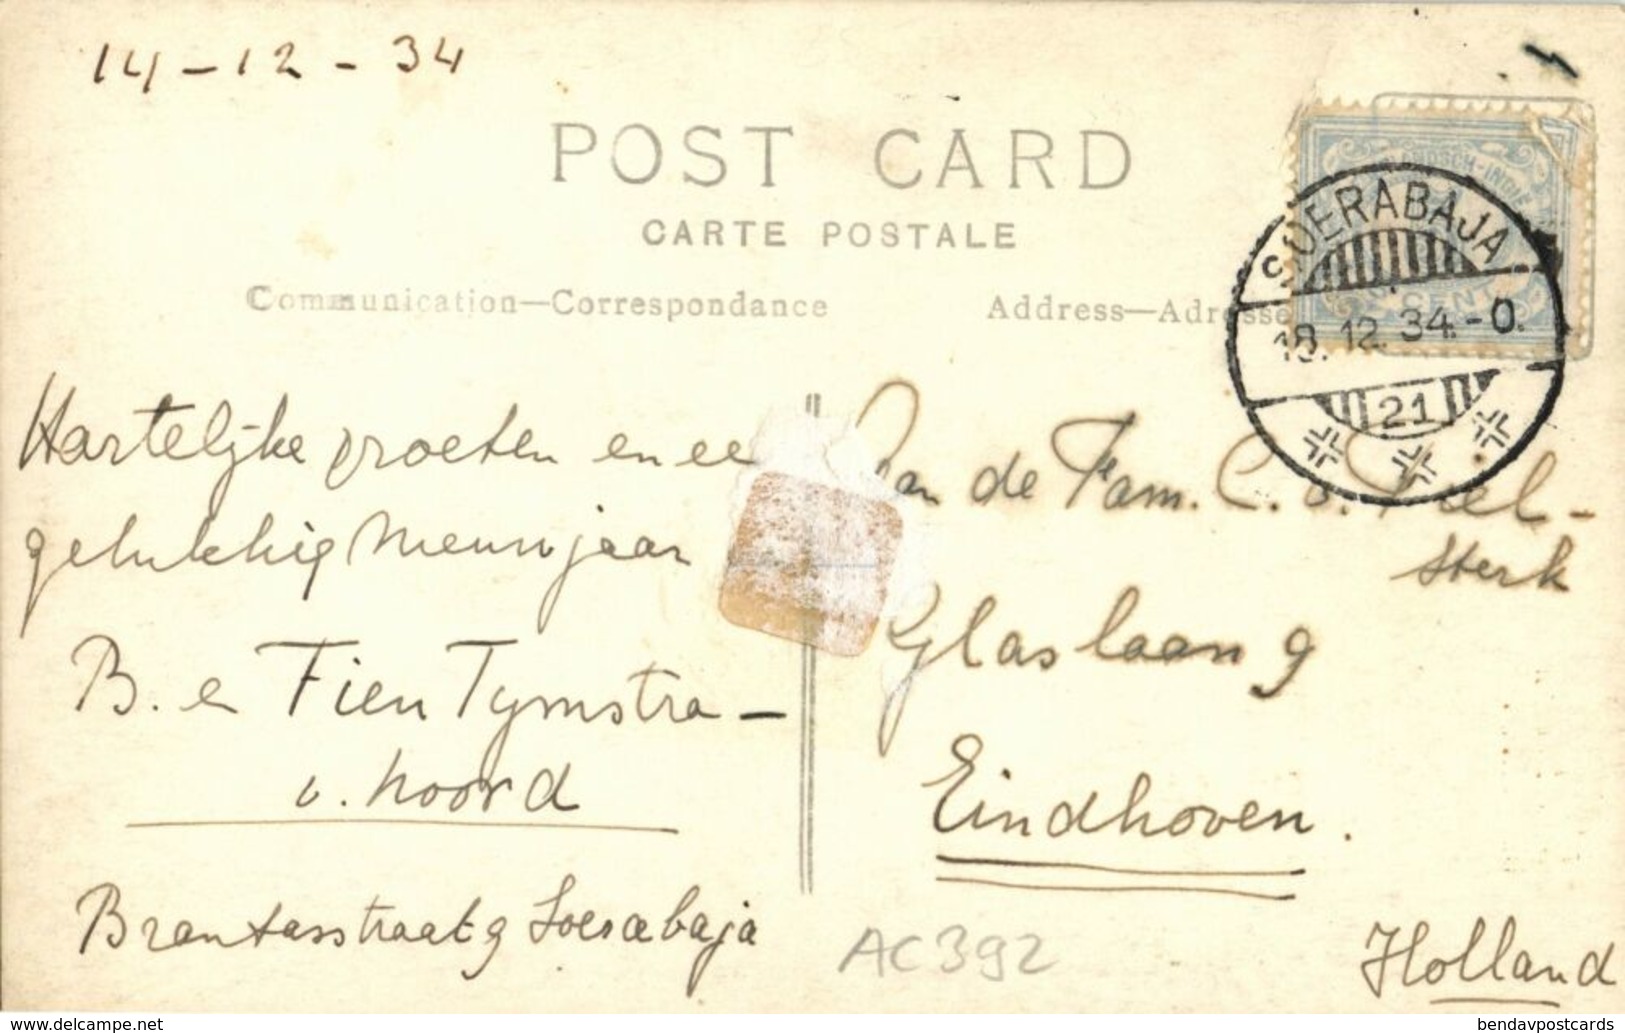 14-12-34
POST CARD
CARTE POSTALE
Communication—Correspondance
Address—Adresse
CENT
SOERABAJA
18.12.34.-0.
21
Hartelijke groeten en ee
gelukkig nieuwjaar
B. e Fien Tymstra-
v. Noord
Brantasstraat 9 Soerabaja
an de Fam. C. v.
sterk
Glaslaan 9
Eindhoven.
Holland
AC392
www.delcampe.net
bendavpostcards